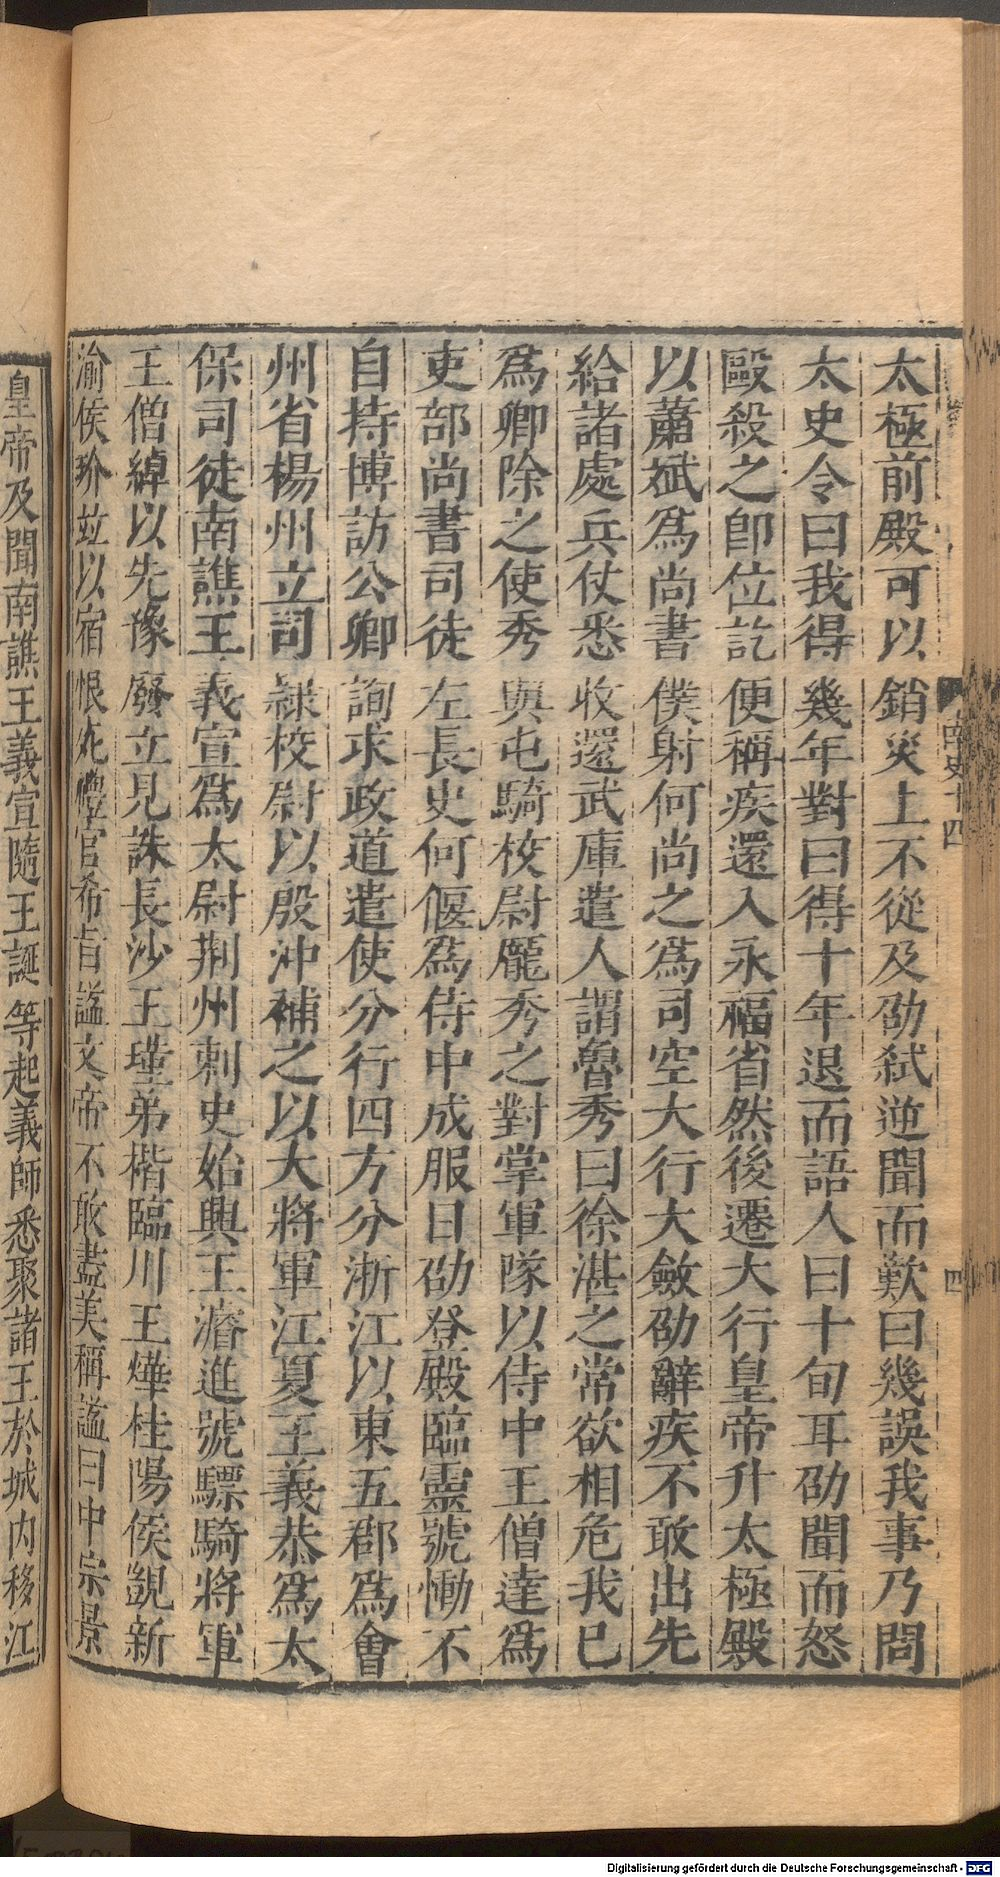 太極前殿可以銷災上不從及劭弑逆聞而歎曰幾誤我事乃問
太史令曰我得幾年對曰得十年退而語人曰十旬耳劭聞而怒
毆殺之卽位訖便稱疾還入永福省然後遷大行皇帝升太極殿
以蕭斌爲尚書僕射何尚之爲司空大行大斂劭辭疾不敢出先
給諸處兵仗悉收還武庫遣人謂魯秀曰徐湛之常欲相危我已
爲卿除之使秀與屯騎校尉龐秀之對掌軍隊以侍中王僧達爲
吏部尚書司徒左長史何偃爲侍中成服日劭登殿臨靈號慟不
自持博訪公卿詢求政道遣使分行四方分浙江以東五郡爲會
州省楊州立司隸校尉以殷沖補之以大將軍江夏王義恭爲太
保司徒南譙王義宣爲太尉荆州刺史始興王濬進號驃騎將軍
王僧綽以先豫廢立見誅長沙王瑾弟楷臨川王燁桂陽侯覬新
渝侯玠竝以宿恨死禮官希旨謚文帝不敢盡美稱謚曰中宗景
皇帝及聞南譙王義宣隨王誕等起義師悉聚諸王於城内移江
南史十四
四
Digitalisierung gefördert durch die Deutsche Forschungsgemeinschaft - DFG